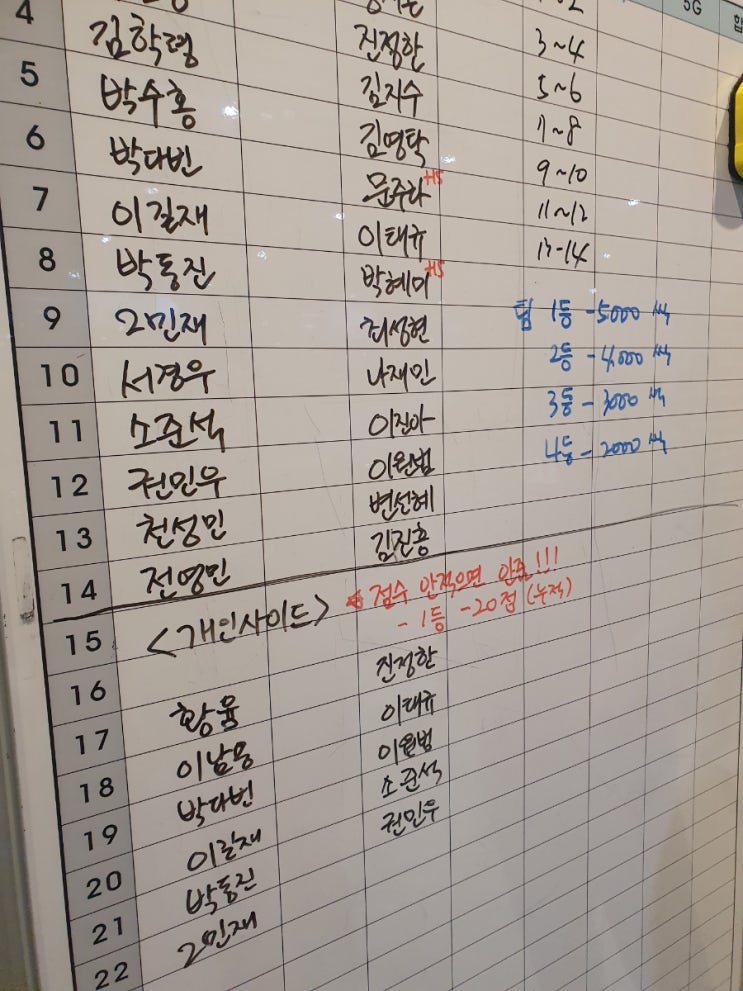 5G
4 김학령 진정한 3~4
5 박수홍 김지수 5~6
6 박다빈 김영탁 7~8
7 이길재 문주라 +15 9~10
8 박동진 이태규 11~12
9 2민재 박혜미 +15 13-14
10 서경우 최성현 팀 1등 -5000
11 소준석 나재민 2등 -4000
12 권민우 이진아 3등 -3000
13 천성민 이원범 4등 -2000
14 전영민 변선혜
김진홍
15 <개인사이드> 점수 안적으면 인정!!!
- 1등 -20점 (누적)
16 진정한
17 황윰 이태규
18 이남웅 이원범
19 박다빈 소준석
20 이길재 권민우
21 박동진
22 2민재